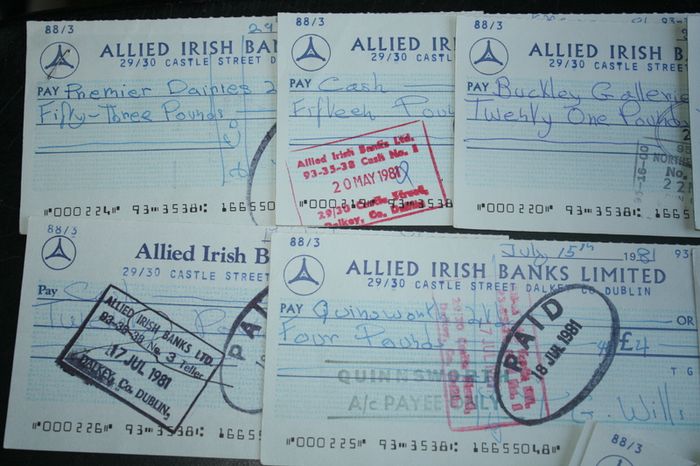 88/3
ALLIED IRISH BAN
29/30 CASTLE STREET D
PAY Premier Dairies
Fifty-Three Pounds
⑈000224⑈ 93⑉3538⑆ 166550
88/3
ALLIED IRI
29/30 CASTLE
PAY Cash
Fifteen Pou
Allied Irish Banks Ltd.
93-35-38 Cash No. 1
20 MAY 1981
29/30 Castle Street,
Dalkey, Co. Dublin
⑈000219⑈ 93⑉3538
88/3
ALLIED IRISH BAN
29/30 CASTLE STREET D
PAY Buckley Gallerie
Twenty One Pounds
NORTHER
No.
⑈000220⑈ 93⑉3538⑆ 16655
88/3
Allied Irish B
29/30 CASTLE STREET
Pay
ALLIED IRISH BANKS LTD.
93-35-38 No. 3 Teller
17 JUL 1981
DALKEY, Co. DUBLIN,
PAID
⑈000226⑈ 93⑉3538⑆ 16655
88/3
July 15th 1981
93
ALLIED IRISH BANKS LIMITED
29/30 CASTLE STREET DALKEY CO. DUBLIN
PAY Quinsworth OR
Four Pounds £4
17 JUL
PAID
18 JUL 1981
QUINNSWORTH
A/c PAYEE ONLY
T G
G. Wills
⑈000225⑈ 93⑉3538⑆ 16655048⑈
88/3